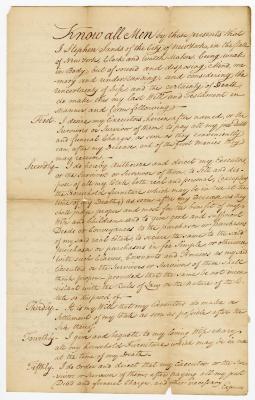 Know all Men by these presents that
I Stephen Sands of the City of New York, in the State
of New York Clock and Watch Maker, being weak
in Body, but of sound and disposing Mind, me-
mory and understanding; and considering the
uncertainty of Life and the certainty of Death
do make this my last Will and Testament in
manner and Form following
First I desire my Executors herein after named, or the
Survivors or Survivor of them to pay all my Debts
and funeral Charges as soon as they conveniently
can after my Decease out of the first Monies they
may receive
Secondly I do hereby authorize and direct my Executors
or the Survivors or Survivor of them to sell and dis-
pose of all my Estate both real and personal (except
the Household furniture which may be in use at the
time of my Death) as soon after my Decease as they
shall judge proper and most for the benefit of my
Wife and Children and to give good and sufficient
Deeds or Conveyances to the purchaser or purchasers
of my said real Estate to secure the same to the said
purchaser or purchasers in fee Simple or otherwise
with such Clauses, Covenants and as my said
Executors or the Survivors or Survivor of them shall
think proper provided that the same be not incon-
sistent with the Rules of Law or the nature of the Es-
tate so disposed of
Thirdly It is my Will that my Executors do make a
Settlement of my Estate as soon as possible after the
Sale thereof
Fourthly I give and bequeath to my loving Wife
all my Household Furniture which may be in use
at the time of my Death
Fifthly I do order and direct that my Executors or the Sur-
vivors or Survivor of them after paying all my just
Debts and funeral Charges and other necessary